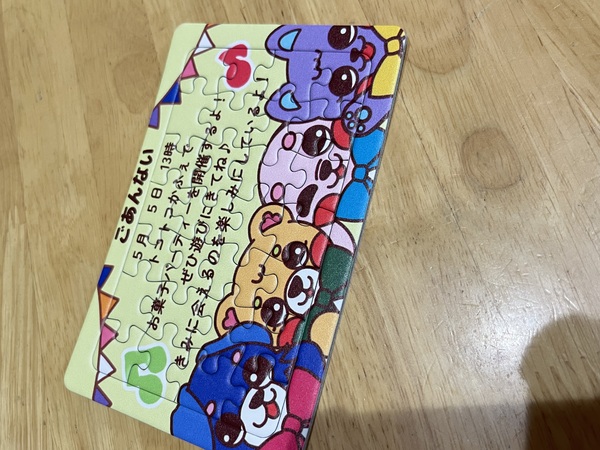 ごあんない
5月5日 13時
トコトコかふぇで
お菓子パーティーを開催するよ!
ぜひ遊びにきてね♪
きみに会えるのを楽しみにしているよ!